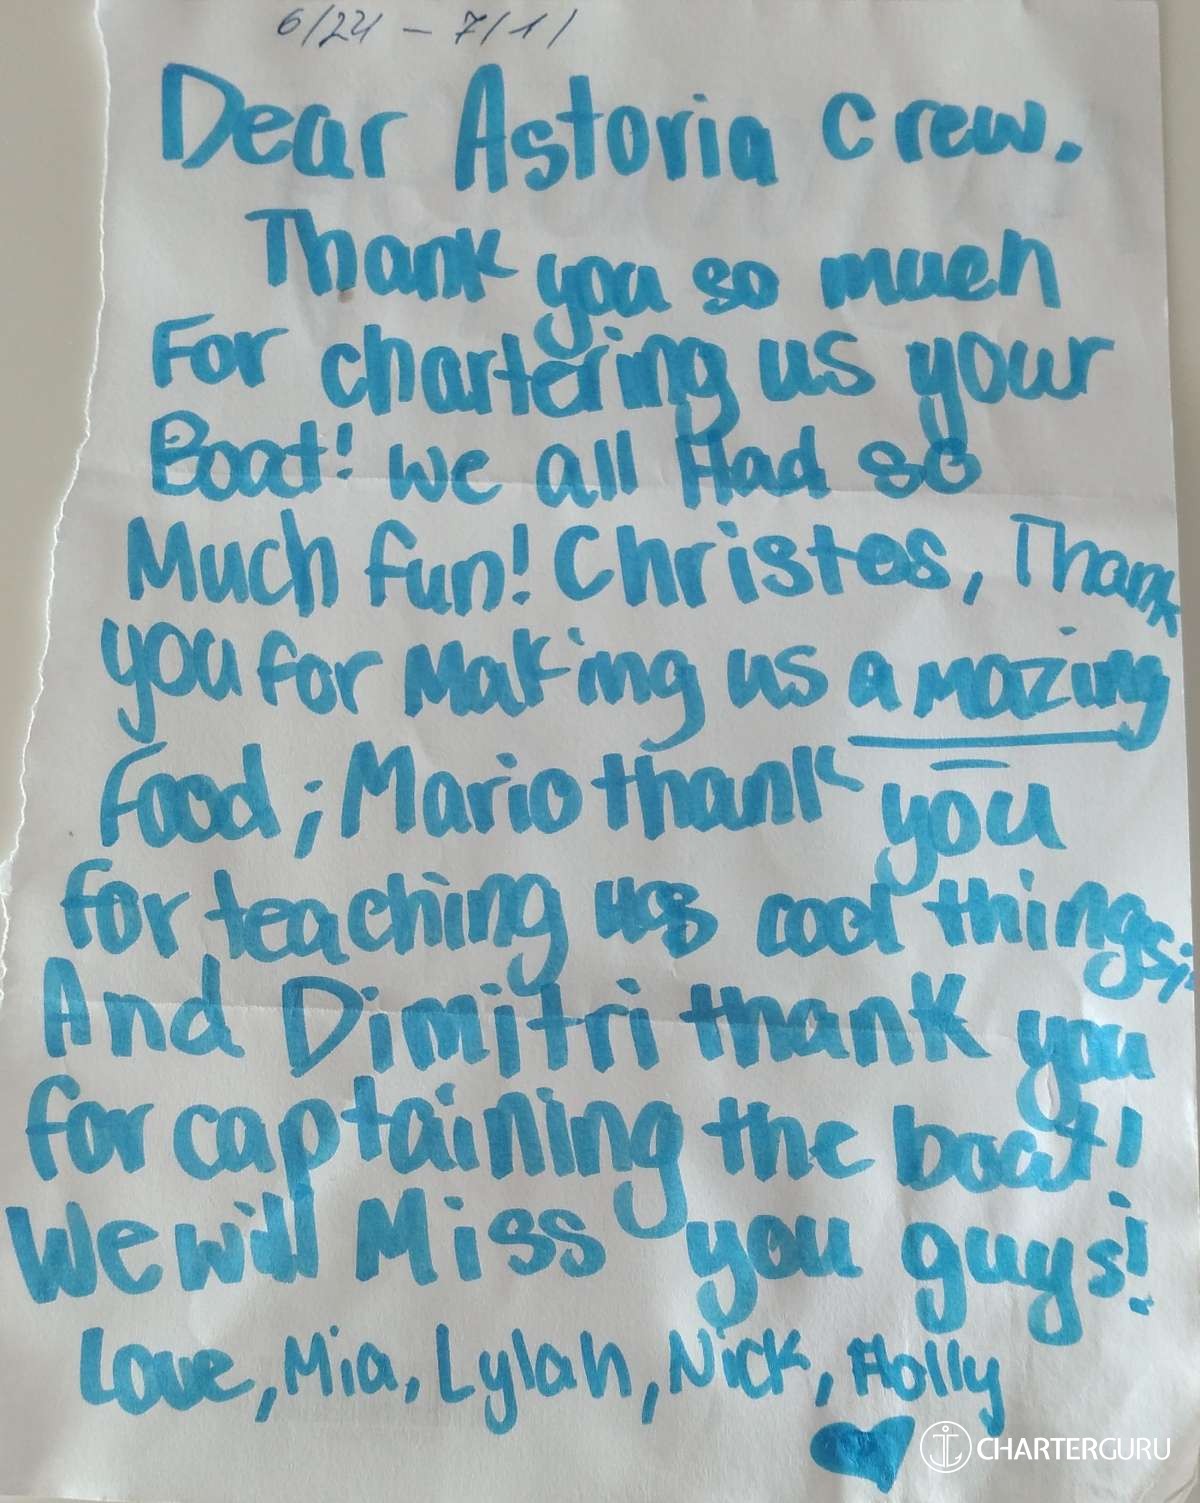 6/24 - 7/1/
Dear Astoria crew.
Thank you so much
For chartering us your
Boat! We all Had so
Much fun! Christos, Thank
you for Making us amazing
Food; Mario thank you
for teaching us cool things;
And Dimitri thank you
for captaining the boat!
We will Miss you guys!
Love, Mia, Lylah, Nick, Holly
CHARTERGURU